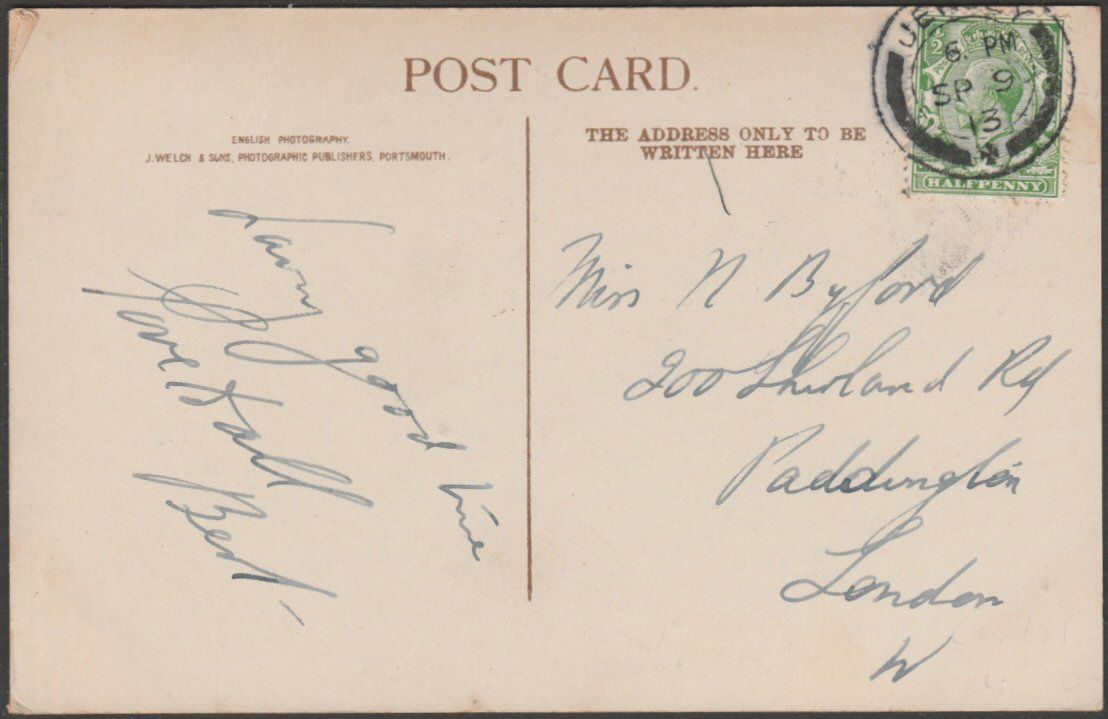 POST CARD.
ENGLISH PHOTOGRAPHY.
J. WELCH & SONS, PHOTOGRAPHIC PUBLISHERS, PORTSMOUTH.
THE ADDRESS ONLY TO BE
WRITTEN HERE
JERSEY
6. PM
SP 9
13
HALFPENNY
good time
Love to all
Bert
Miss N Byford
200 Shirland Rd
Paddington
London
W